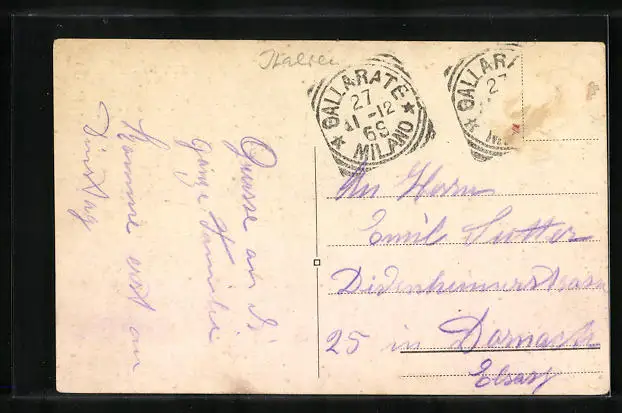 Italien
GALLARATE
27
11-12
6S
★ MILANO ★
GALLARA
27
Grüsse an die
ganze Familie
Komme erst am
Dinstag
An Herrn
Emil Sutter
Didenheimerstrasse
25 in Dornach
Elsass